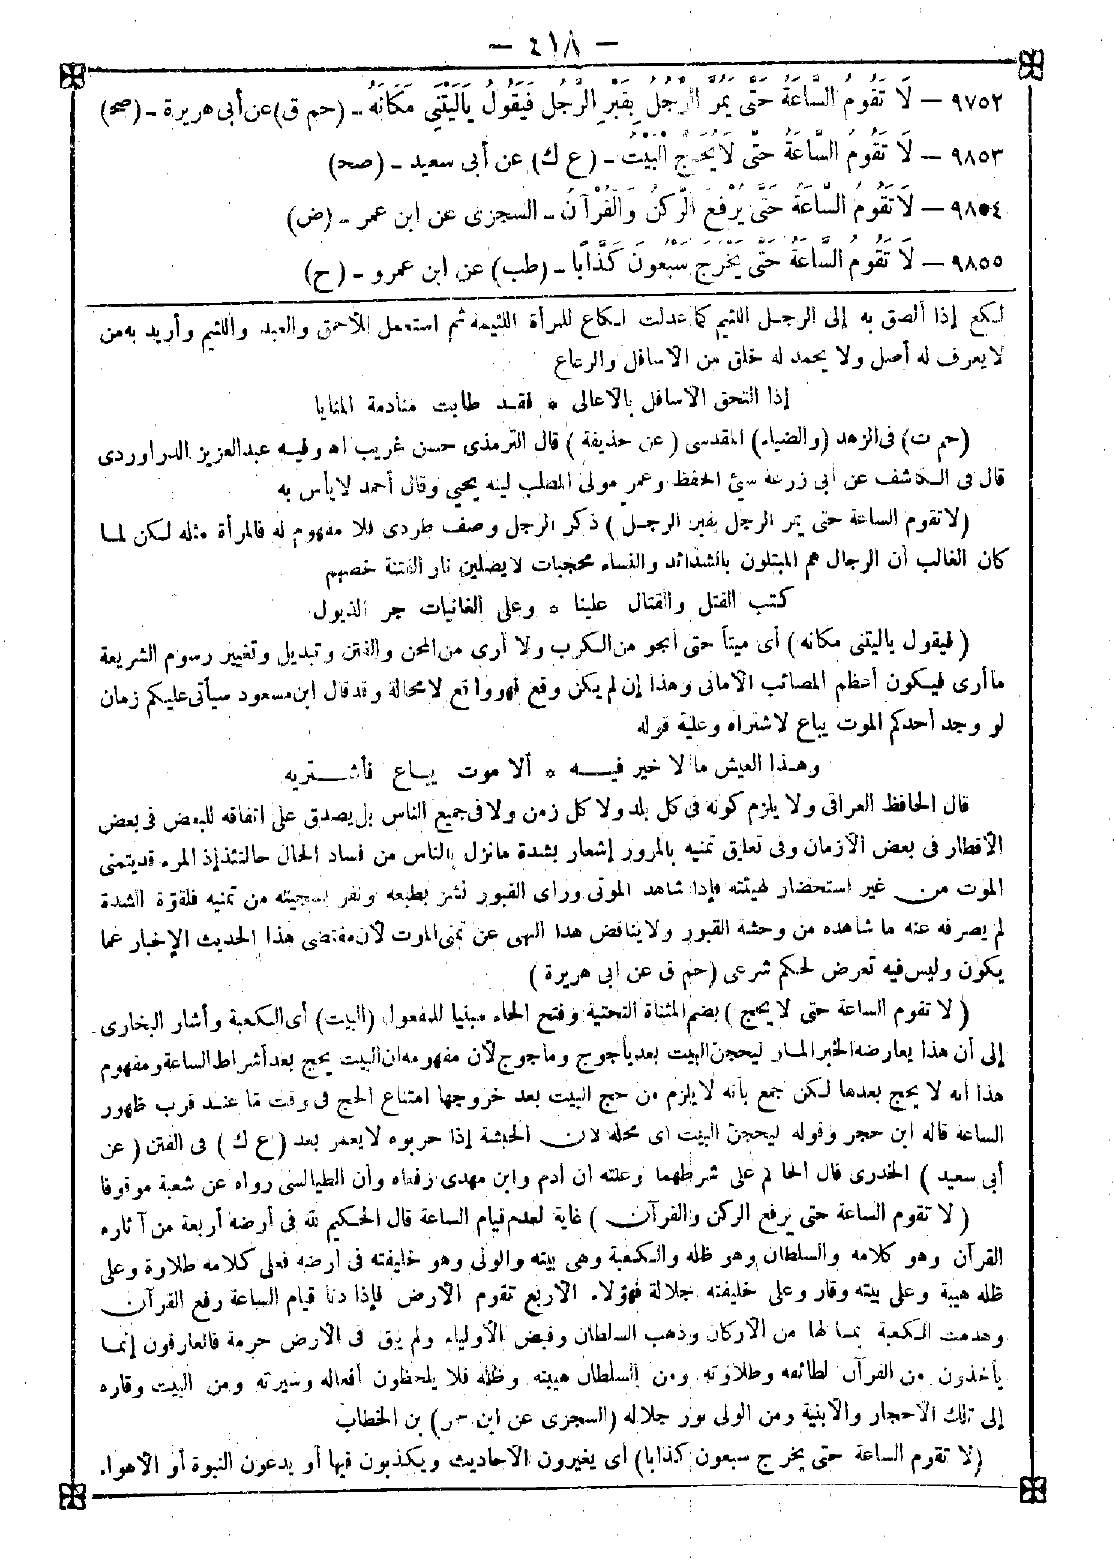 — ٤١٨ —
٩٧٥٢ — لَا تَقُومُ السَّاعَةُ حَتَّى يَمُرَّ الرَّجُلُ بِقَبْرِ الرَّجُلِ فَيَقُولُ يَالَيْتَنِي مَكَانَهُ - (حم ق) عن أبى هريرة - (صح)
٩٨٥٣ — لَا تَقُومُ السَّاعَةُ حَتَّى لَا يُحَجَّ الْبَيْتُ - (ع ك) عن أبى سعيد - (صح)
٩٨٥٤ — لَا تَقُومُ السَّاعَةُ حَتَّى يُرْفَعَ الرُّكْنُ وَالْقُرْآنُ - السجزى عن ابن عمر - (ض)
٩٨٥٥ — لَا تَقُومُ السَّاعَةُ حَتَّى يَخْرُجَ سَبْعُونَ كَذَّابًا - (طب) عن ابن عمرو - (ح)
لكع إذا ألصق به إلى الرجل اللئيم كما عدلت لكاع للمرأة اللئيمة ثم استعمل للأحمق والعبد واللئيم وأريد به من
لا يعرف له أصل ولا يحمد له خلق من الأسافل والرعاع
إذا التحق الأسافل بالأعالى * فقد طابت منادمة المنايا
(حم ت) فى الزهد (والضياء) المقدسى (عن حذيفة) قال الترمذى حسن غريب اه وفيه عبد العزيز الدراوردى
قال فى الكاشف عن أبى زرعة سيئ الحفظ وعمر مولى المطلب لينه يحيى وقال أحمد لا بأس به
(لا تقوم الساعة حتى يمر الرجل بقبر الرجل) ذكر الرجل وصف طردى فلا مفهوم له فالمرأة مثله لكن لما
كان الغالب أن الرجال هم المبتلون بالشدائد والنساء محجبات لا يصلين نار الفتنة خصهم
كتب القتل والقتال علينا * وعلى الغانيات جر الذيول
(فيقول ياليتنى مكانه) أى ميتاً حتى أنجو من الكرب ولا أرى من المحن والفتن وتبديل وتغيير رسوم الشريعة
ما أرى فيكون أعظم المصائب الأمانى وهذا إن لم يكن وقع فهو واقع لا محالة وقد قال ابن مسعود سيأتى عليكم زمان
لو وجد أحدكم الموت يباع لاشتراه وعليه قوله
وهذا العيش ما لا خير فيه * ألا موت يباع فأشتريه
قال الحافظ العراقى ولا يلزم كونه فى كل بلد ولا كل زمن ولا فى جميع الناس بل يصدق على اتفاقه للبعض فى بعض
الأقطار فى بعض الأزمان وفى تعليق تمنيه بالمرور إشعار بشدة ما نزل بالناس من فساد الحال حالتئذ إذ المرء قد يتمنى
الموت من غير استحضار لهيئته فإذا شاهد الموتى ورأى القبور نشز بطبعه ونفر بسجيته من تمنيه فلقوة الشدة
لم يصرفه عنه ما شاهده من وحشة القبور ولا يناقض هذا النهى عن تمنى الموت لأن مقتضى هذا الحديث الإخبار عما
يكون وليس فيه تعرض لحكم شرعى (حم ق عن ابى هريرة)
(لا تقوم الساعة حتى لا يحج) بضم المثناة التحتية وفتح الحاء مبنيا للمفعول (البيت) أى الكعبة وأشار البخارى
إلى أن هذا يعارضه الخبر المار ليحجن البيت بعد يأجوج ومأجوج لأن مفهومه ان البيت يحج بعد أشراط الساعة ومفهوم
هذا أنه لا يحج بعدها لكن جمع بأنه لا يلزم من حج البيت بعد خروجها امتناع الحج فى وقت ما عند قرب ظهور
الساعة قاله ابن حجر وقوله ليحجن البيت أى محله لأن الحبشة إذا خربوه لا يعمر بعد (ع ك) فى الفتن (عن
أبى سعيد) الخدرى قال الحا م على شرطهما وعلته ان آدم وابن مهدى رفعاه وأن الطيالسى رواه عن شعبة موقوفا
(لا تقوم الساعة حتى يرفع الركن والقرآن) غاية لعدم قيام الساعة قال الحكيم لله فى أرضه أربعة من آثاره
القرآن وهو كلامه والسلطان وهو ظله والكعبة وهى بيته والولى وهو خليفته فى أرضه فعلى كلامه طلاوة وعلى
ظله هيبة وعلى بيته وقار وعلى خليفته جلالة فهؤلاء الأربع تقوم الأرض فإذا دنا قيام الساعة رفع القرآن
وهدمت الكعبة بما لها من الأركان وذهب السلطان وقبض الأولياء ولم يبق فى الأرض حرمة فالعارفون إنما
يأخذون من القرآن لطائفه وطلاوته ومن السلطان هيبته وظله فلا يلحظون أفعاله وسيرته ومن البيت وقاره
إلى تلك الأحجار والأبنية ومن الولى نور جلاله (السجزى عن ابن عمر) بن الخطاب
(لا تقوم الساعة حتى يخرج سبعون كذابا) أى يغيرون الأحاديث ويكذبون فيها أو يدعون النبوة أو الأهواء